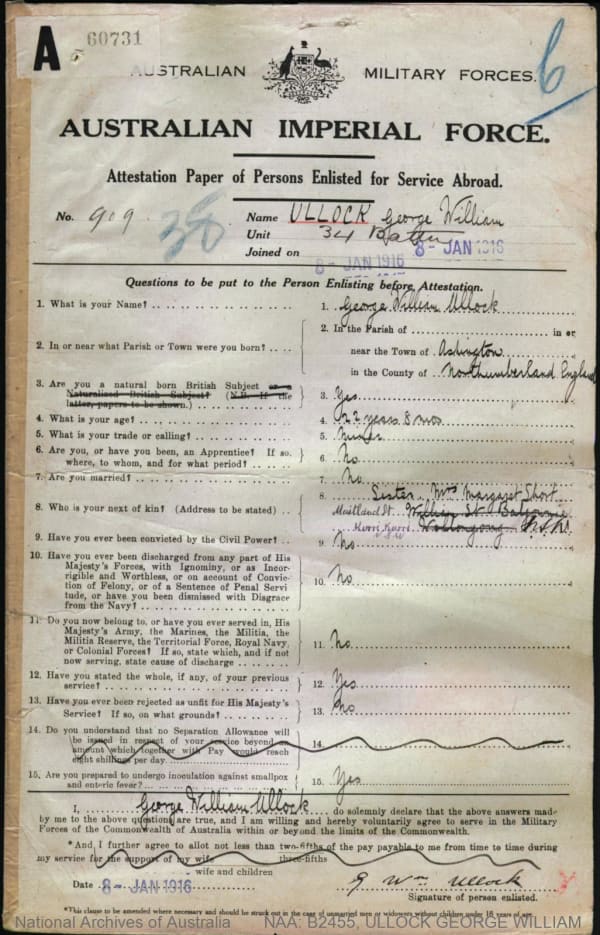 A 60731
6
AUSTRALIAN MILITARY FORCES.
AUSTRALIAN IMPERIAL FORCE.
Attestation Paper of Persons Enlisted for Service Abroad.
No. 909 38 Name ULLOCK George William
Unit 34 Battn
Joined on 8-JAN 1916
8-JAN 1916
Questions to be put to the Person Enlisting before Attestation.
1. What is your Name? 1. George William Ullock
2. In or near what Parish or Town were you born? 2. In the Parish of in or
near the Town of Ashington
in the County of Northumberland England
3. Are you a natural born British Subject or a
Naturalised British Subject? (N.B. If the
latter, papers to be shown.) 3. Yes
4. What is your age? 4. 22 years 8 mos
5. What is your trade or calling? 5. Miner
6. Are you, or have you been, an Apprentice? If so,
where, to whom, and for what period? 6. No
7. Are you married? 7. No
8. Who is your next of kin? (Address to be stated) 8. Sister Mrs Margaret Short
Maitland St William St
Kurri Kurri Wollongong N.S.W.
N S W
9. Have you ever been convicted by the Civil Power? 9. No
10. Have you ever been discharged from any part of His
Majesty's Forces, with Ignominy, or as Incor-
rigible and Worthless, or on account of Convic-
tion of Felony, or of a Sentence of Penal Servi
tude, or have you been dismissed with Disgrace
from the Navy? 10. No
11. Do you now belong to, or have you ever served in, His
Majesty's Army, the Marines, the Militia, the
Militia Reserve, the Territorial Force, Royal Navy,
or Colonial Forces? If so, state which, and if not
now serving, state cause of discharge 11. No
12. Have you stated the whole, if any, of your previous
service? 12. Yes
13. Have you ever been rejected as unfit for His Majesty's
Service? If so, on what grounds? 13. No
14. Do you understand that no Separation Allowance will
be issued in respect of your service beyond an
amount which together with Pay would reach
eight shillings per day. 14.
15. Are you prepared to undergo inoculation against smallpox
and enteric fever? 15. Yes
I, George William Ullock do solemnly declare that the above answers made
by me to the above questions are true, and I am willing and hereby voluntarily agree to serve in the Military
Forces of the Commonwealth of Australia within or beyond the limits of the Commonwealth.
*And I further agree to allot not less than two-fifths of the pay payable to me from time to time during
three-fifths
my service for the support of my wife
wife and children
Date 8-JAN 1916 G Wm Ullock
Signature of person enlisted.
*This clause to be amended where necessary and should be struck out in the case of unmarried men or widowers without children under 18 years of age.
National Archives of Australia NAA: B2455, ULLOCK GEORGE WILLIAM